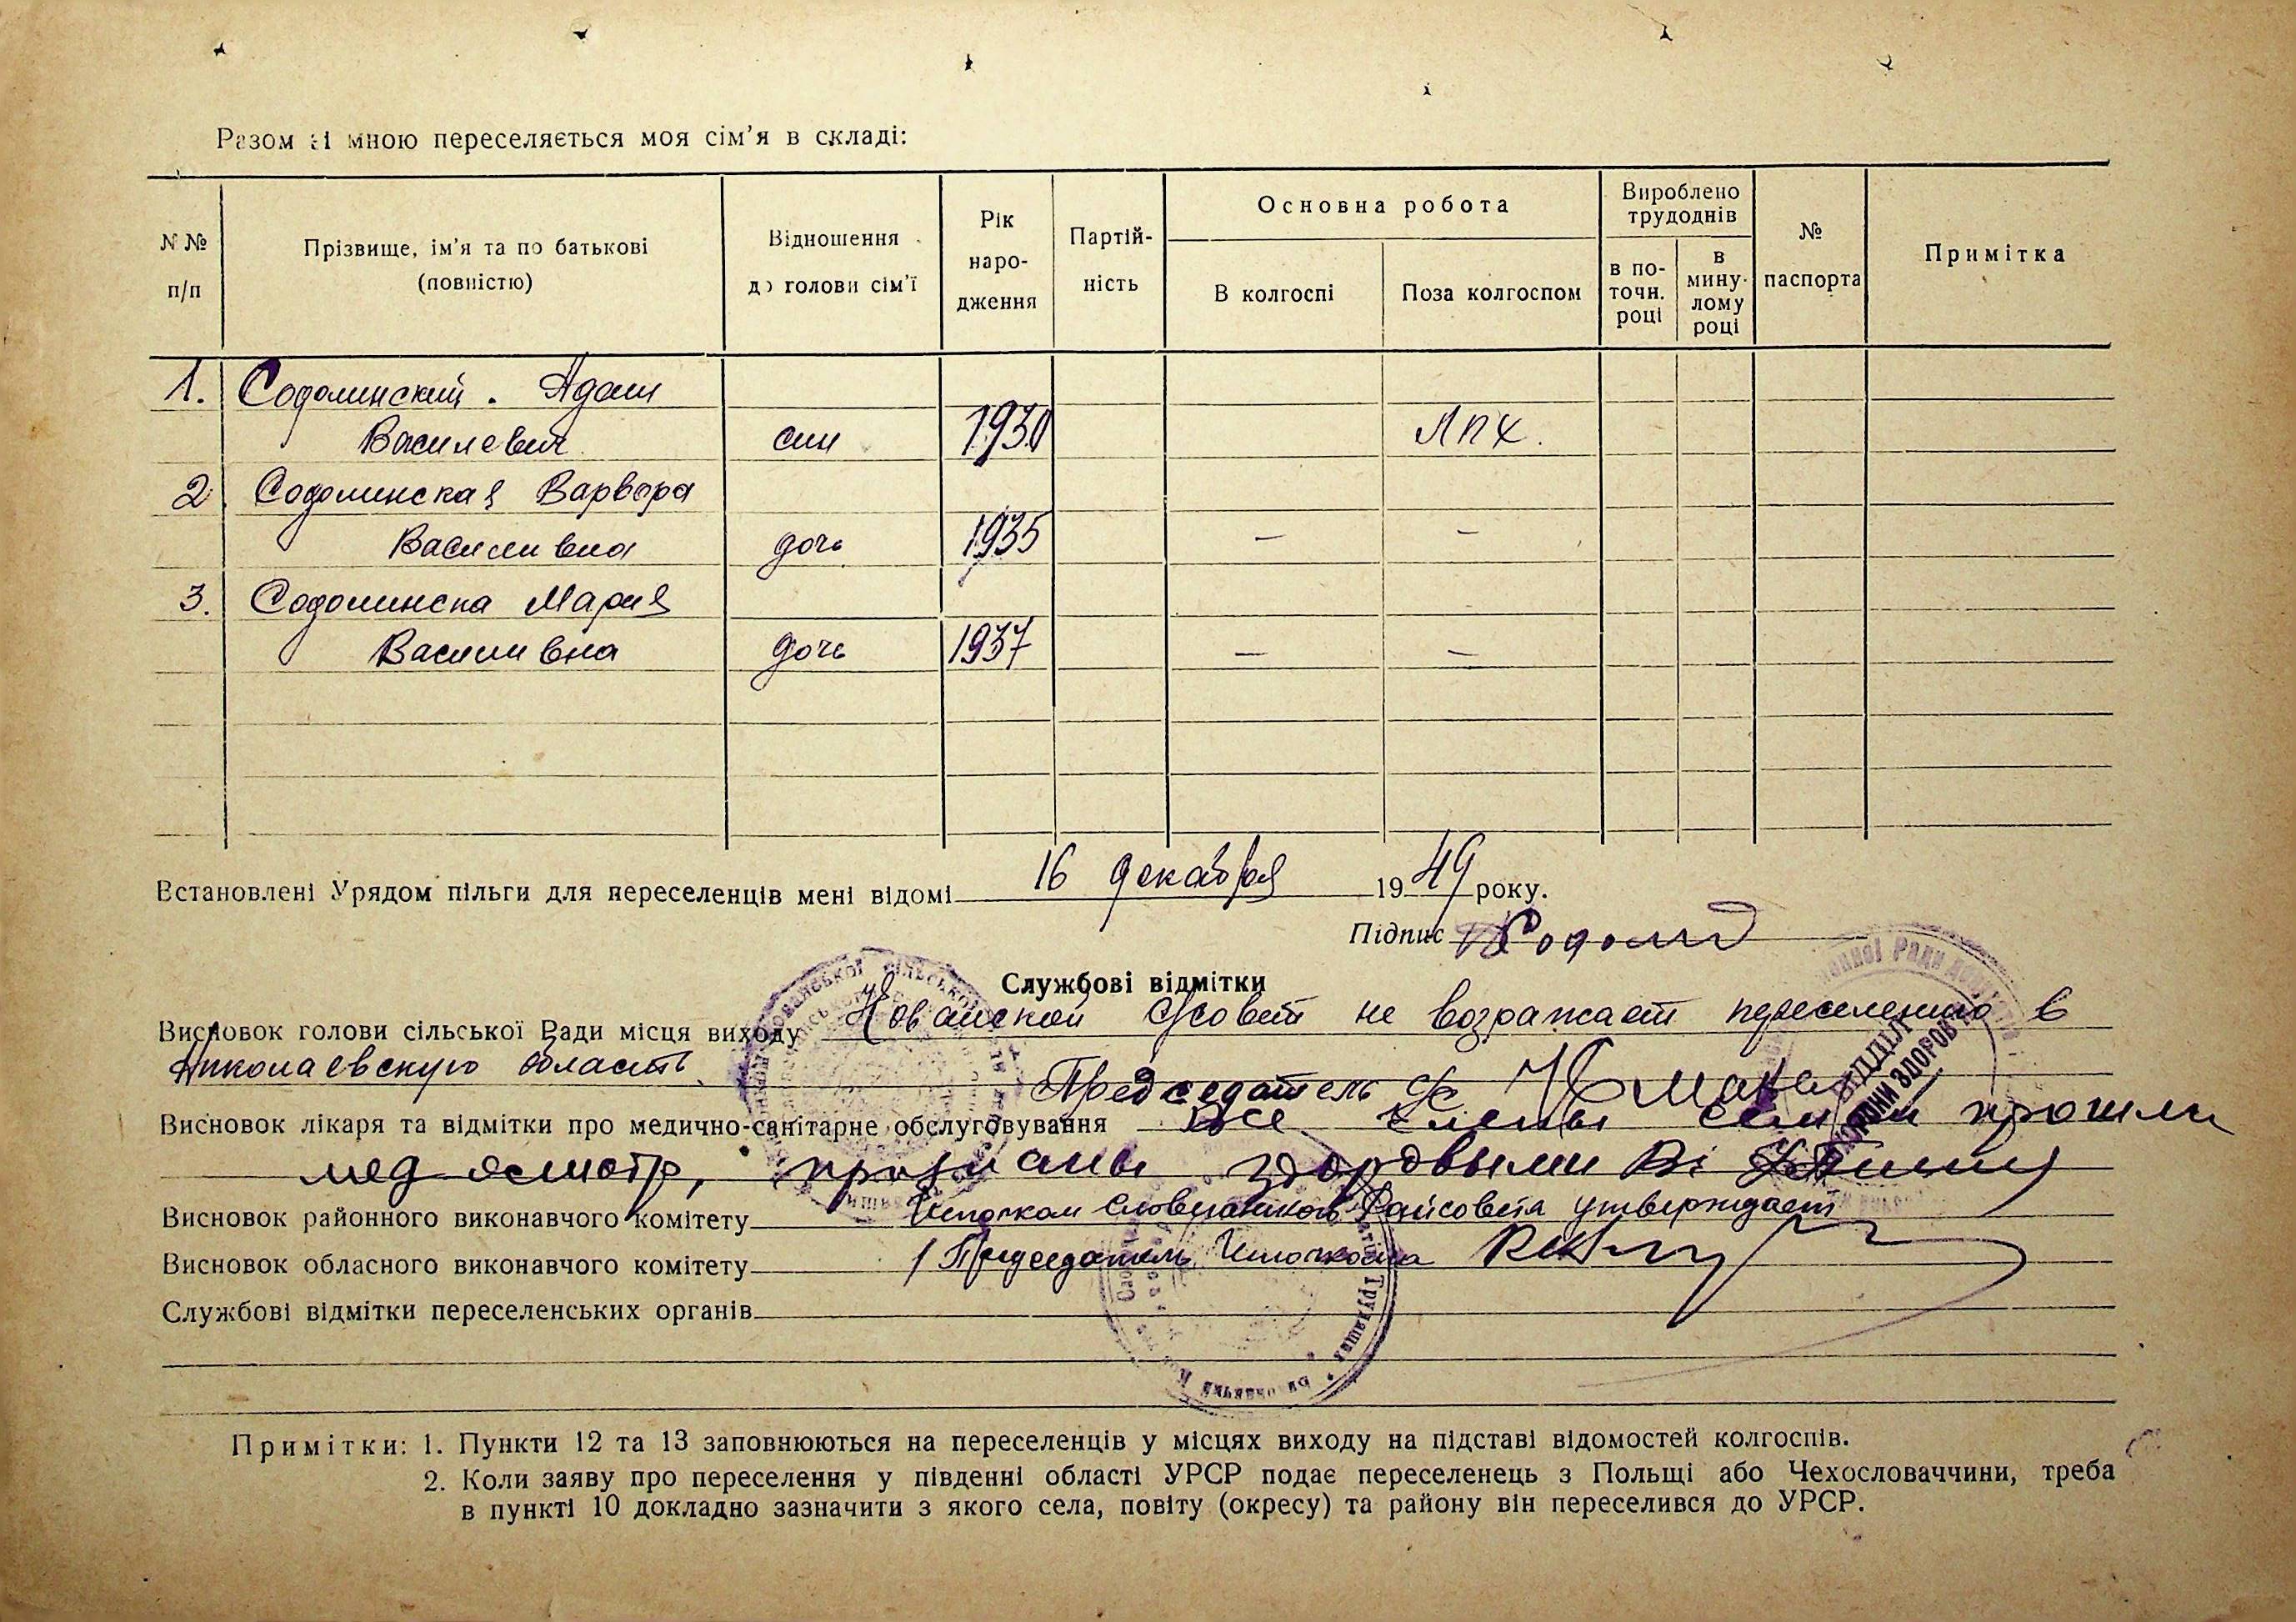 Разом зі мною переселяється моя сім'я в складі:
N №
п/п
Прізвище, ім'я та по батькові
(повністю)
Відношення
до голови сім'ї
Рік
наро-
дження
Партій-
ність
Основна робота
В колгоспі
Поза колгоспом
Вироблено
трудоднів
в по-
точн.
році
в
мину-
лому
році
№
паспорта
Примітка
1. Содолинский. Адам
Василевич син 1930 ЛПХ.
2. Содолинская Варвора
Василивна дочь 1935 — —
3. Содолинска Мария
Василивна дочь 1937 — —
Встановлені Урядом пільги для переселенців мені відомі 16 декабря 1949 року.
Підпис
Службові відмітки
Висновок голови сільської Ради місця виходу не возражает переселению в
Николаевскую область.
Председатель с/с
Висновок лікаря та відмітки про медично-санітарне обслуговування Все члены семьи прошли
мед осмотр, признаны здоровыми
Висновок районного виконавчого комітету Исполком Словечанского Райсовета утверждает
Висновок обласного виконавчого комітету / Председатель Исполкома
Службові відмітки переселенських органів
ВІДДІЛ
ОХОРОНИ ЗДОРОВ'Я
Трудящих
Примітки: 1. Пункти 12 та 13 заповнюються на переселенців у місцях виходу на підставі відомостей колгоспів.
2. Коли заяву про переселення у південні області УРСР подає переселенець з Польщі або Чехословаччини, треба
в пункті 10 докладно зазначити з якого села, повіту (окресу) та району він переселився до УРСР.